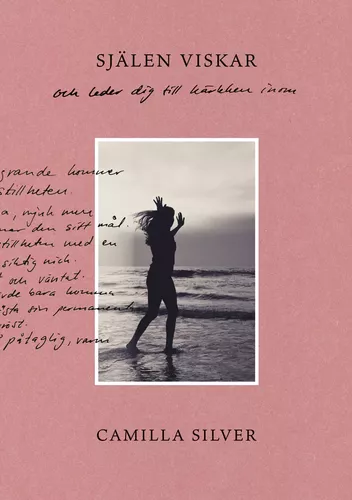 SJÄLEN VISKAR
och leder dig till kärleken inom
grande kommer
stillheten.
a, mjuk men
nar den sitt mål.
stillheten med en
siktig mig.
t och väntat.
rde bara komma
ista som permanent
röst.
påtaglig, varm
CAMILLA SILVER